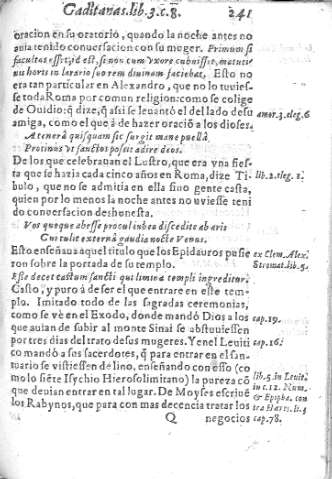 Gaditanas. lib. 3. c. 8. 241
oracion en su oratorio, quando la noche antes no
auia tenido conuersacion con su muger. Primum si
facultas esset, id est, si non cum vxore cubuisset, matuti-
nis horis in larario suo rem diuinam faciebat. Esto no
era tan particular en Alexandro, que no lo tuuies-
se toda Roma por comun religion: como se colige
de Ouidio: q̃ dize, q̃ assi se leuantò el del lado de su
amiga, como el que à de hazer oraciõ a los dioses.
amor. 3. eleg. 6
A tenera quisquam sic surgit mane puella,
Protinus vt sanctos possit adire deos.
De los que celebrauan el Lustro, que era vna fies-
ta que se hazia cada cinco años en Roma, dize Ti-
bulo, que no se admitia en ella sino gente casta,
lib. 2. eleg. 1.
quien por lo menos la noche antes no vuiesse teni
do conuersacion deshonesta.
Vos quoque abesse procul iubeo discedite ab aris
Cui tulit externa gaudia nocte Venus.
Esto enseñaua aquel titulo que los Epidauros pusie
ron sobre la portada de su templo.
ex Clem. Alex.
Stromat. lib. 5.
Esse decet castum sancti qui limina templi ingreditur.
Casto, y puro à de ser el que entrare en este tem-
plo. Imitado todo de las sagradas ceremonias,
como se vè en el Exodo, donde mandò Dios a los
cap. 19.
que auian de subir al monte Sinai se abstuuiessen
por tres dias del trato de sus mugeres. Y en el Leuiti
cap. 16.
co mandò a sus sacerdotes, q̃ para entrar en el san-
tuario se vistiessen de lino, enseñando con esso (co
mo lo siẽte Isychio Hierosolimitano) la pureza cõ
lib. 5. in Leuit.
que deuian entrar en tal lugar. De Moyses escriuẽ
in c. 12. Num.
& Epipha. con
los Rabynos, que para con mas decencia tratar los
tra Hæres. li. 4
Q negocios
cap. 78.